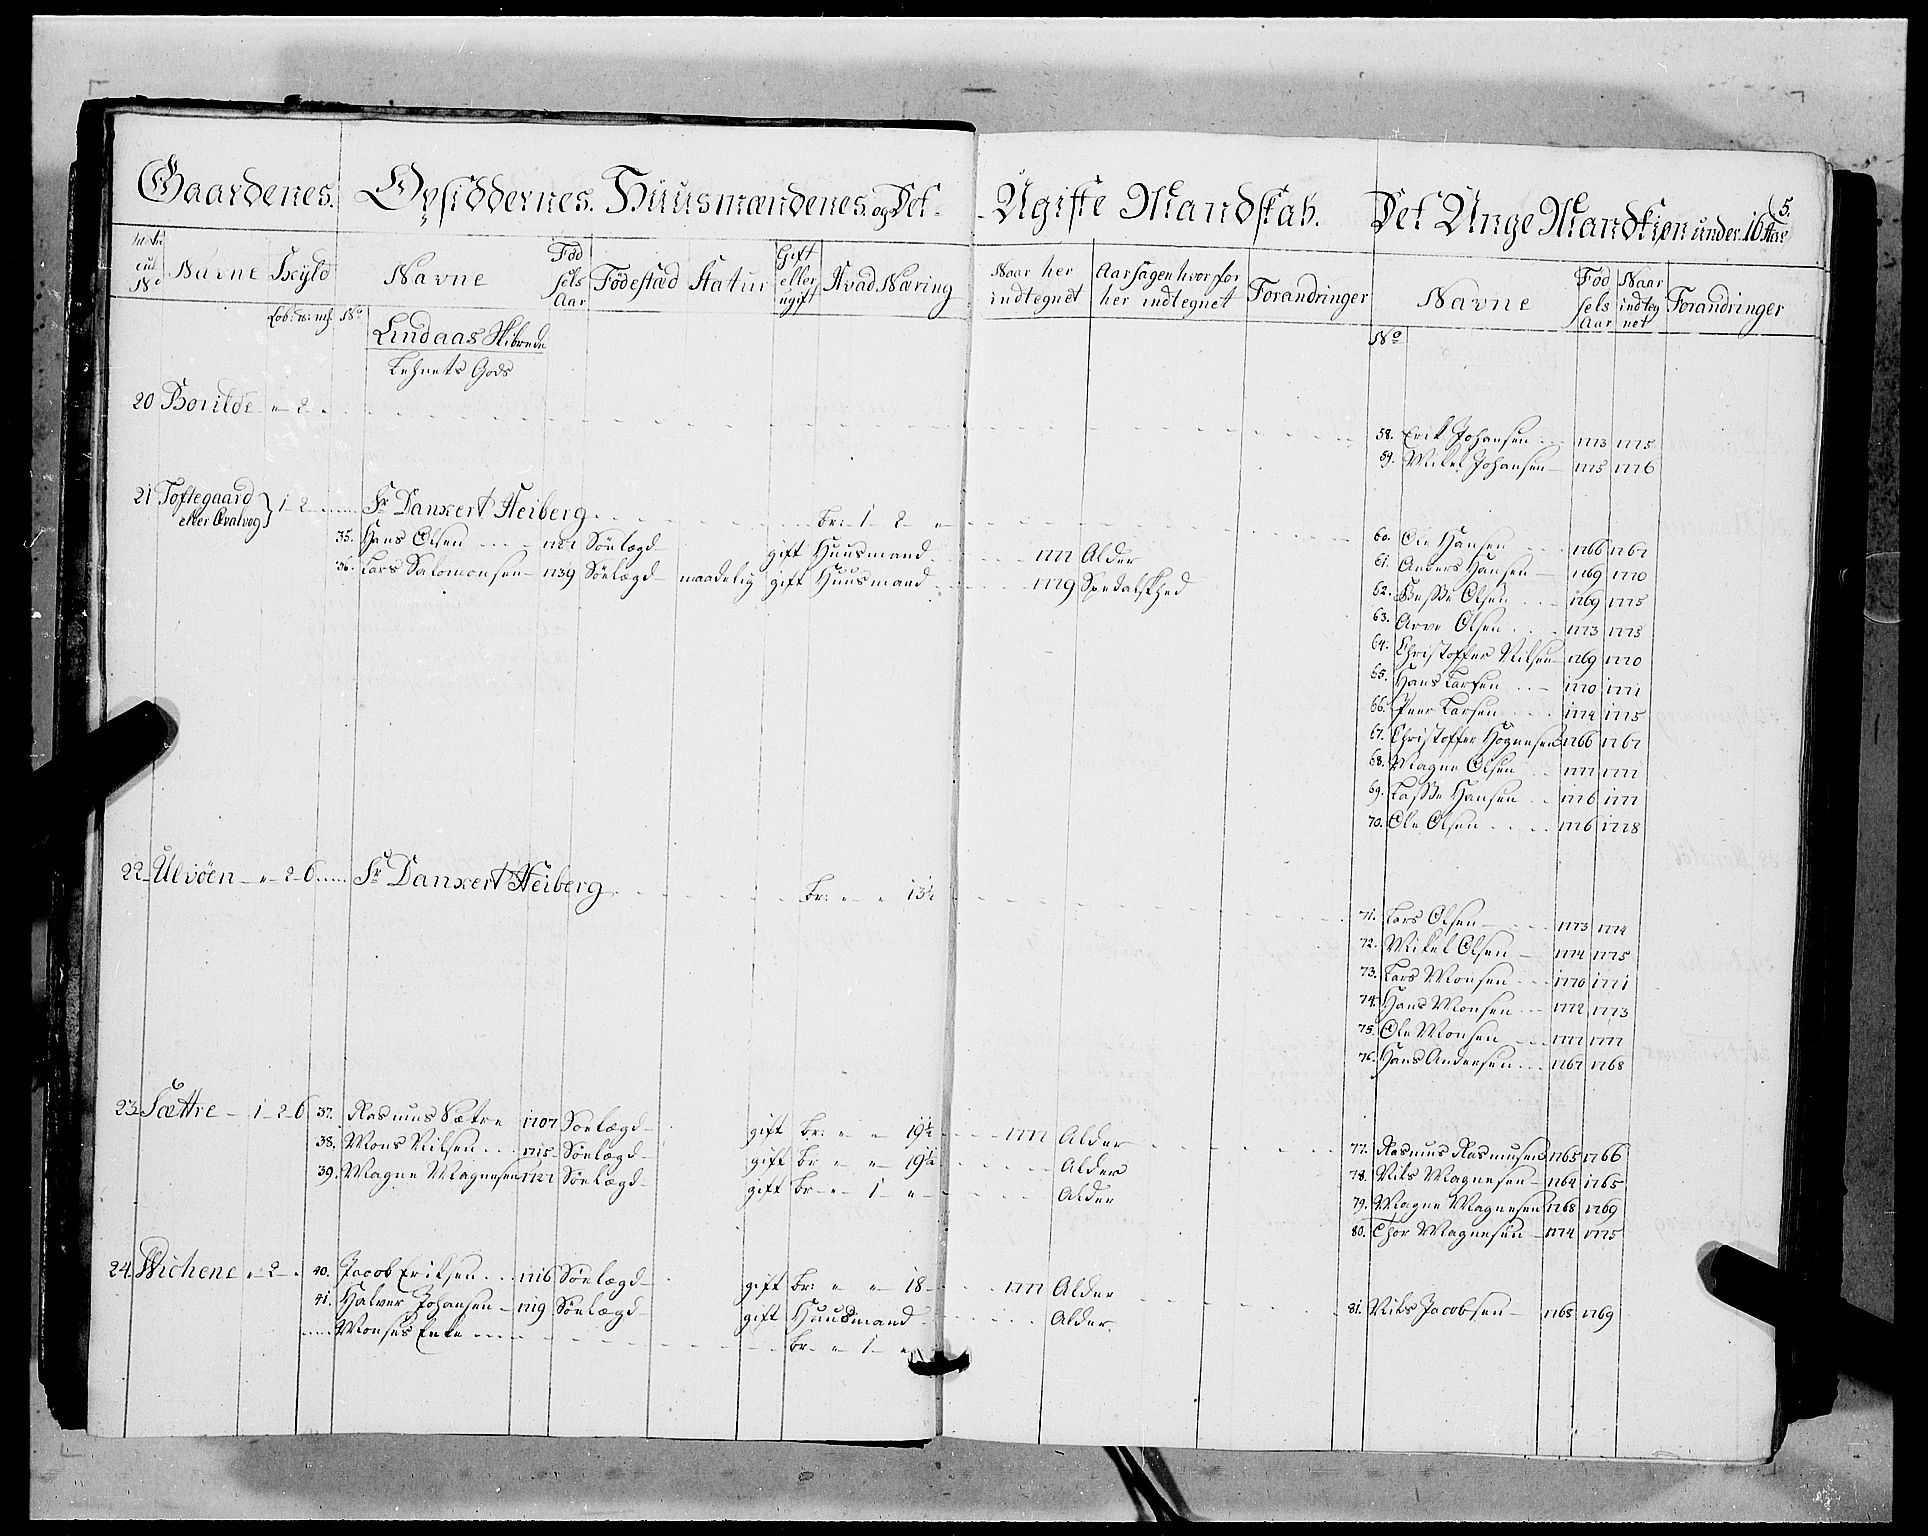 5.
Gaardenes. Opsiddernes. Huusmændenes. og Det Ugifte Mandskab. Det Unge Mandkiøn under 16 Aar
Matri cul No Navne Skyld Navne Fød sels Aar Fødestæd Statur Gift eller ugift Hvad Næring Naar her indtegnet Aarsagen hvorfor her indtegnet Forandringer Navne Fød sels Aar Naar indteg net Forandringer
Løb: No No
Lindaas Skibrede
Lehnets Gods
20 Borilde " 2
58. Erik Johansen 1773 1775
59. Mikel Johansen 1775 1776
21 Toftegaard eller Qvalvog 1 2 Sr Danxert Heiberg br: 1 2 "
35. Hans Olsen 1721 Søelægd gift Huusmand 1777 Alder
36. Lars Salomonsen 1739 Søelægd maadelig gift Huusmand 1779 Spedalskhed
60. Ole Hansen 1766 1767
61. Anders Hansen 1769 1770
62. Besse Olsen 1769 1775
63. Arve Olsen 1773 1773
64. Christoffer Nilsen 1769 1770
65. Hans Larsen 1770 1771
66. Peer Larsen 1774 1775
67. Christoffer Hognesen 1766 1767
68. Magne Olsen 1777 1777
69. Lasse Hansen 1776 1777
70. Ole Olsen 1776 1778
22 Ulvøen " 2 6 Sr Danxert Heiberg br: " " 13½
71. Lars Olsen 1773 1774
72. Mikel Olsen 1774 1775
73. Lars Monsen 1770 1771
74. Hans Monsen 1772 1773
75. Ole Monsen 1777 1777
76. Hans Andersen 1767 1768
23 Sættre 1 2 6 37. Rasmus Sætre 1707 Søelægd gift br: " " 19½ 1777 Alder
38. Mons Nilsen 1715 Søelægd gift br " " 19½ Alder
39. Magne Magnesen 1721 Søelægd gift br " 1 " Alder
77. Rasmus Rasmusen 1765 1766
78. Nils Magnesen 1764 1765
79. Magne Magnesen 1768 1769
80. Thor Magnesen 1774 1775
24. Wichene " 2 40. Jacob Eriksen 1716 Søelægd gift br: " " 18 1777 Alder
41. Halver Johansen 1719 Søelægd gift Huusmand Alder.
Monses Enke br " 1 "
81. Nils Jacobsen 1768 1769